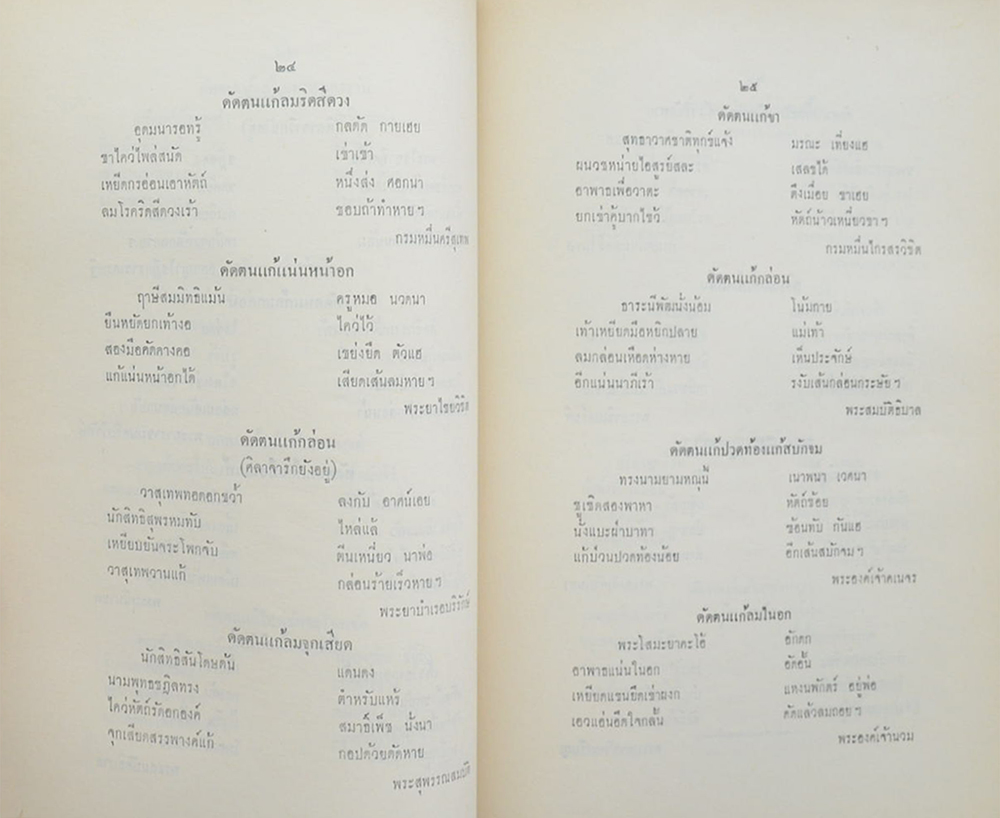 ๒๔
ดัดตนแก้ลมริดสีดวง
อุดมนารอทรู้ กลดัด กายเฮย
ขาไคว่ไพล่สนัด เข่าเข้า
เหยียดกรอ่อนเอาหัตถ์ หนึ่งส่ง ศอกนา
ลมโรคริดสีดวงเร้า ขอบถ้าทำหายฯ
กรมหมื่นศรีสุเทพ
ดัดตนแก้แน่นหน้าอก
ฤาษีสมมิทธิแม้น ครูหมอ นวดนา
ยืนหยัดยกเท้างอ ไคว่ไว้
สองมือคัดคางคอ เขย่งยึด ตัวแฮ
แก้แน่นหน้าอกได้ เสียดเส้นลมหายฯ
พระยาไชยวิชิต
ดัดตนแก้กล่อน
(ศิลาจารึกยังอยู่)
วาสุเทพทอดอกขว้ำ ลงกับ อาศน์เอย
นักสิทธิสุพรหมทับ ไหล่แล้
เหยียบยันจระโพกจับ ตีนเหนี่ยว นาพ่อ
วาสุเทพวานแก้ กล่อนร้ายเร็วหายฯ
พระยาบำเรอบริรักษ์
ดัดตนแก้ลมจุกเสียด
นักสิทธิสันโดษดัน แดนดง
นามพุทธชฎิลทรง ตำหรับแหร้
ไคว่หัตถ์รัดอกองค์ สมาธิ์เพ็ช นั่งนา
จุกเสียดสรรพางค์แก้ กอปด้วยดัดหาย
พระสุพรรณสมบัติ
๒๕
ดัดตนแก้ขา
สุทธาวาศชาติทุกข์แจ้ง มรณะ เที่ยงแฮ
ผนวชหน่ายไอสูรย์สละ เสลชได้
อาพาธเพื่อวาตะ ตึงเมื่อย ขาเฮย
ยกเข่าคู้บากไขว้ หัตถ์น้าวเหนี่ยวขาฯ
กรมหมื่นไกรสรวิชิต
ดัดตนแก้กล่อน
ธาระนีพัฒนั่งน้อม โน้มกาย
เท้าเหยียดมือหยิกปลาย แม่เท้า
ลมกล่อนเหือดห่างหาย เห็นประจักษ์
อีกแน่นนาภีเร้า รงับเส้นกล่อนกระษัยฯ
พระสมบัติธิบาล
ดัดตนแก้ปวดท้องแก้สบักจม
ทรงนามยามหณุนี้ เนาพนา เวศนา
ชูเชิดสองพาหา หัตถ์ช้อย
นั่งแบะฝ่าบาทา ซ้อนทับ กันแฮ
แก้ป่วนปวดท้องน้อย อีกเส้นสมักจมฯ
พระองค์เจ้าคเนจร
ดัดตนแก้ลมในอก
พระโสมะยาคะโอ้ อักตก
อาพาธแน่นในอก อัดอั้น
เหยียดแขนยึดเข่าผงก แหงนพักตร์ อยู่พ่อ
เอวแอ่นอึดใจกลั้น ดัดแล้วลมถอยฯ
พระองค์เจ้านวม